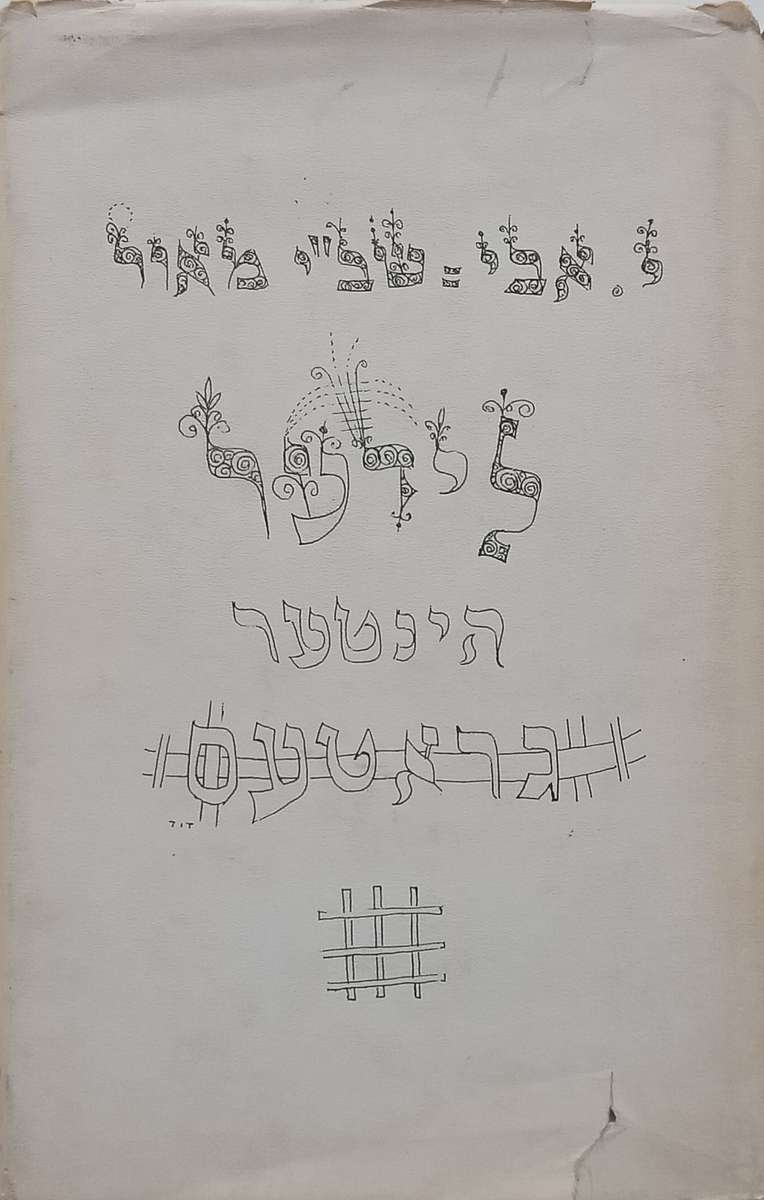 י. אבי=שב"י מאיר
לידער
הינטער
גראַטעס
דוד